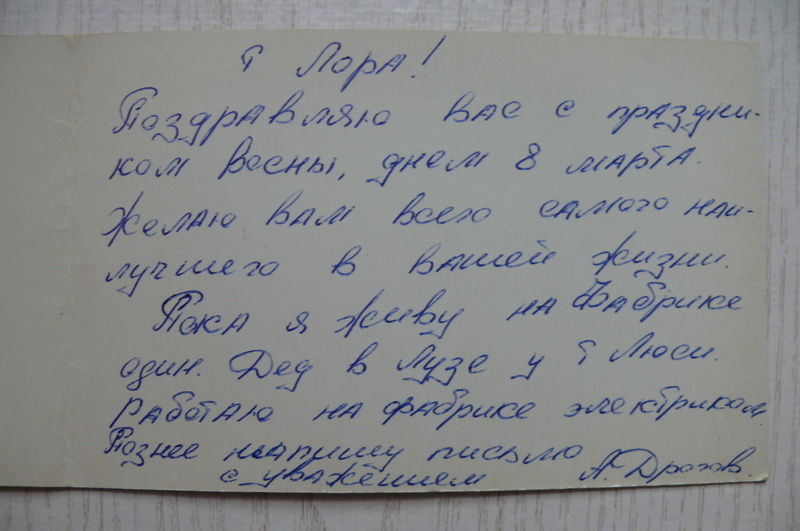 т Лора!
Поздравляю вас с праздни-
ком весны, днем 8 марта.
Желаю вам всего самого наи-
лучшего в вашей жизни.
Пока я живу на Фабрике
один. Дед в Лузе у т Люси.
Работаю на фабрике электриком.
Позднее напишу письмо
с уважением А. Дрогов.